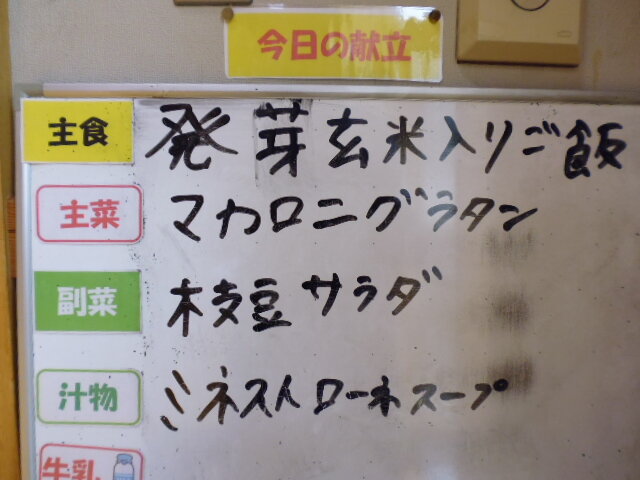 今日の献立
主食 発芽玄米入りご飯
主菜 マカロニグラタン
副菜 枝豆サラダ
汁物 ミネストローネスープ
牛乳